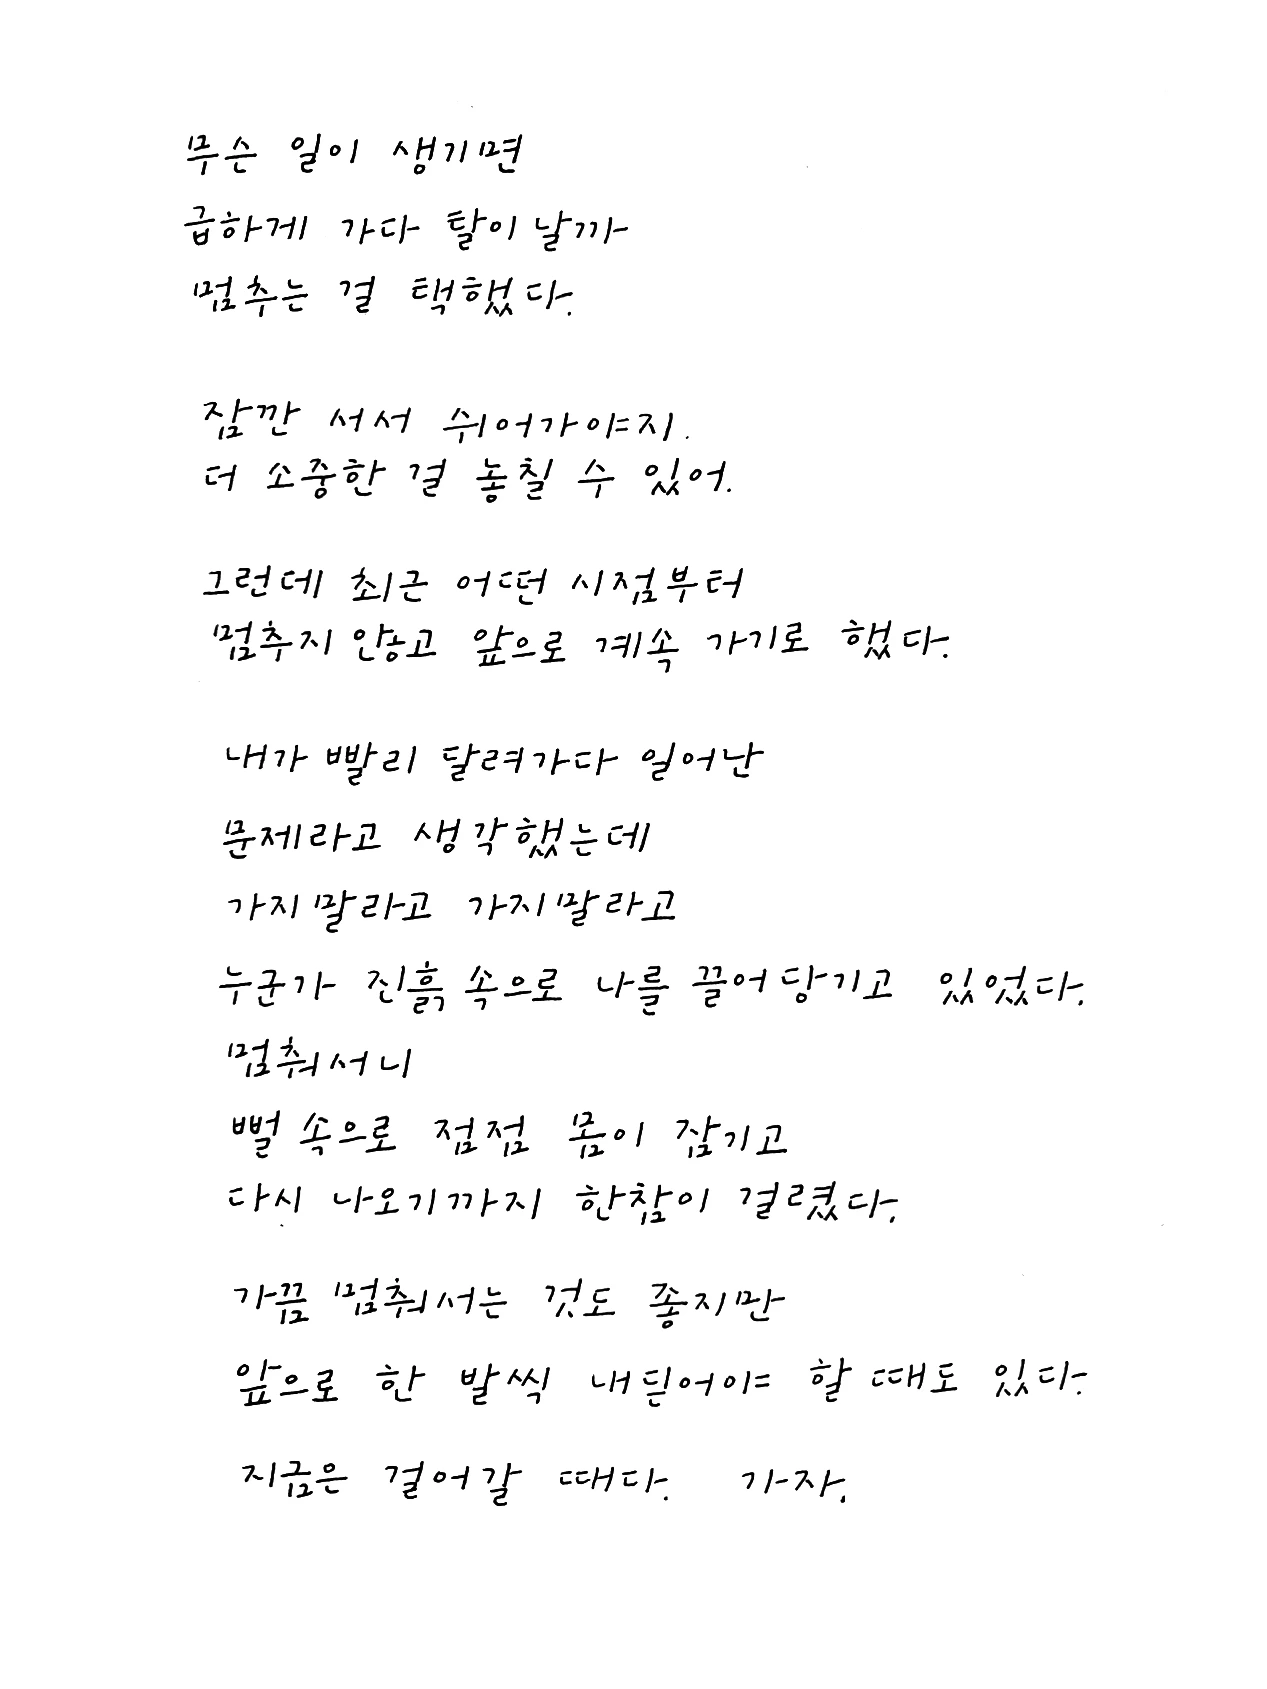 무슨 일이 생기면
급하게 가다 탈이 날까
멈추는 걸 택했다.
잠깐 서서 쉬어가야지.
더 소중한 걸 놓칠 수 있어.
그런데 최근 어떤 시점부터
멈추지 않고 앞으로 계속 가기로 했다.
내가 빨리 달려가다 일어난
문제라고 생각했는데
가지말라고 가지말라고
누군가 진흙 속으로 나를 끌어당기고 있었다.
멈춰서니
뻘 속으로 점점 몸이 잠기고
다시 나오기까지 한참이 걸렸다.
가끔 멈춰서는 것도 좋지만
앞으로 한 발씩 내딛어야 할 때도 있다.
지금은 걸어갈 때다. 가자.